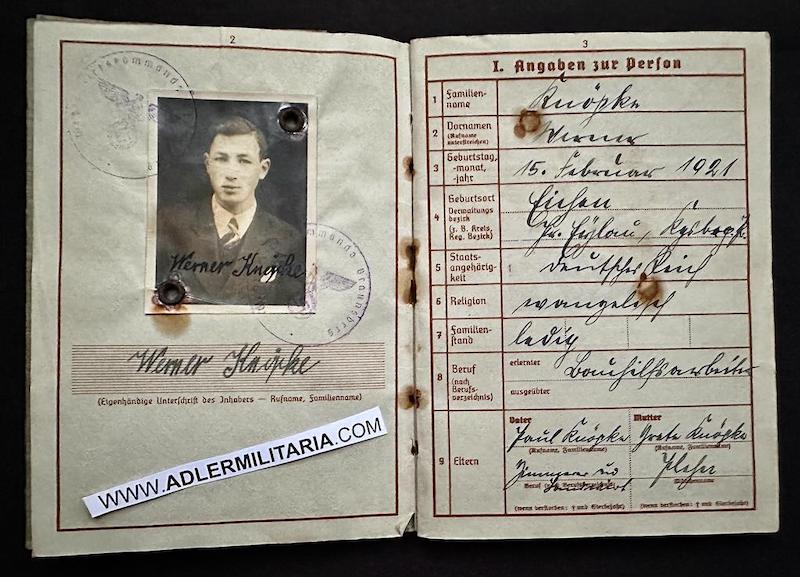 2
Werner Knöpke
Werner Knöpke
(Eigenhändige Unterschrift des Inhabers — Rufname, Familienname)
WWW.ADLERMILITARIA.COM
3
I. Angaben zur Person
1 Familien-
name
Knöpke
2 Vornamen
(Rufname
unterstreichen)
Werner
3 Geburtstag,
-monat,
-jahr
15. Februar 1921
4 Geburtsort
Verwaltungs
bezirk
(z. B. Kreis,
Reg. Bezirk)
Eichen
Pr. Eylau,
5 Staats-
angehörig-
keit
Deutsches Reich
6 Religion
evangelisch
7 Familien-
stand
ledig
8 Beruf
(nach
Berufs-
verzeichnis)
erlernter
Bauhilfsarbeiter
ausgeübter
9 Eltern
Vater
Paul Knöpke
(Rufname, Familienname)
Beruf (nach Berufsverzeichnis)
(wenn verstorben: † und Sterbejahr)
Mutter
Grete Knöpke
(Rufname, Familienname)
Mädchenname
(wenn verstorben: † und Sterbejahr)